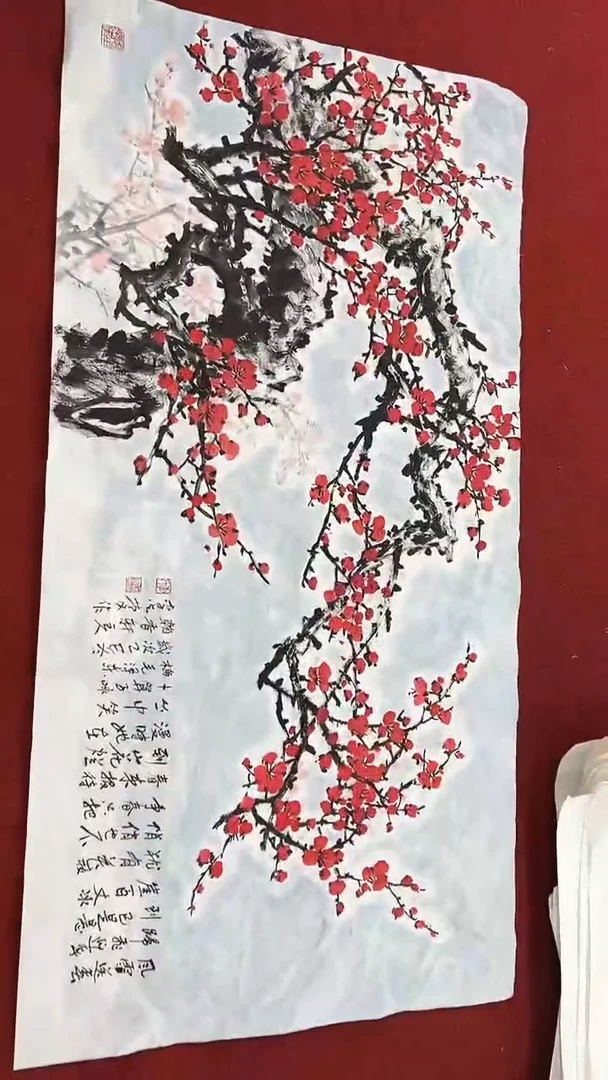 风雨送春
归飞雪迎
春到已是悬
崖百丈冰
犹有花枝
俏俏也不
争春只把
春来报待
到山花烂
漫时她在
丛中笑
卜算子咏
梅毛泽东
岁次己亥冬
翰香轩主
作